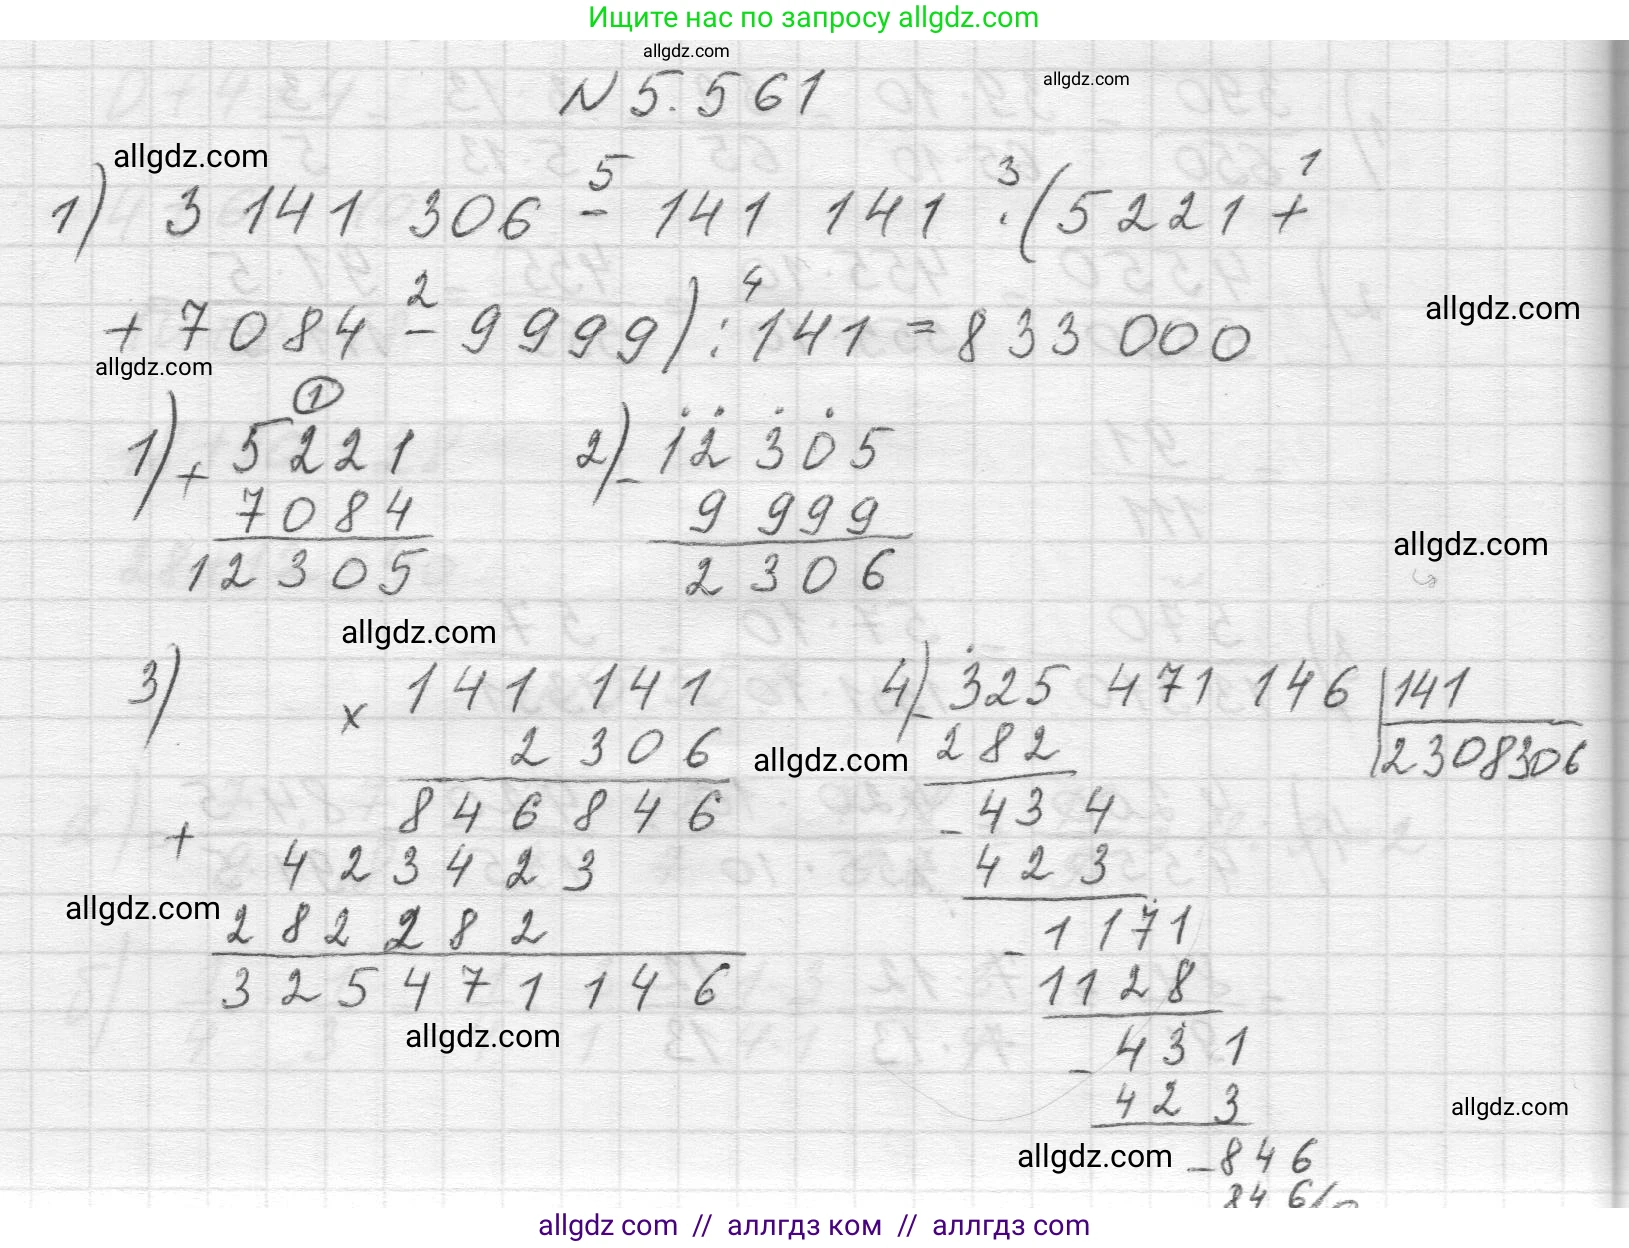 Ищите нас по запросу allgdz.com
allgdz.com
N 5.561
allgdz.com
allgdz.com
5 3 1
1) 3 141 306 - 141 141 · (5221 +
2 4
+ 7084 - 9999) : 141 = 833 000
allgdz.com
allgdz.com
1
1) + 5221
7084
12305
2) - 12305
9999
2306
allgdz.com
allgdz.com
3) x 141 141
2306
846846
+ 423423
282282
325471146
4) - 325 471 146 | 141
2308306
282
- 434
423
- 1171
1128
- 431
423
- 846
846
allgdz.com
allgdz.com
allgdz.com
allgdz.com
allgdz.com
allgdz com // аллгдз ком // аллгдз com